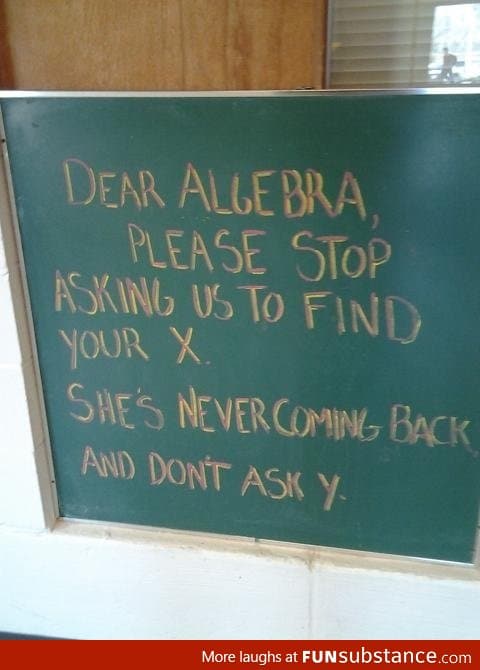 DEAR ALGEBRA,
PLEASE STOP
ASKING US TO FIND
YOUR X.
SHE'S NEVER COMING BACK,
AND DON'T ASK Y.
More laughs at FUNsubstance.com